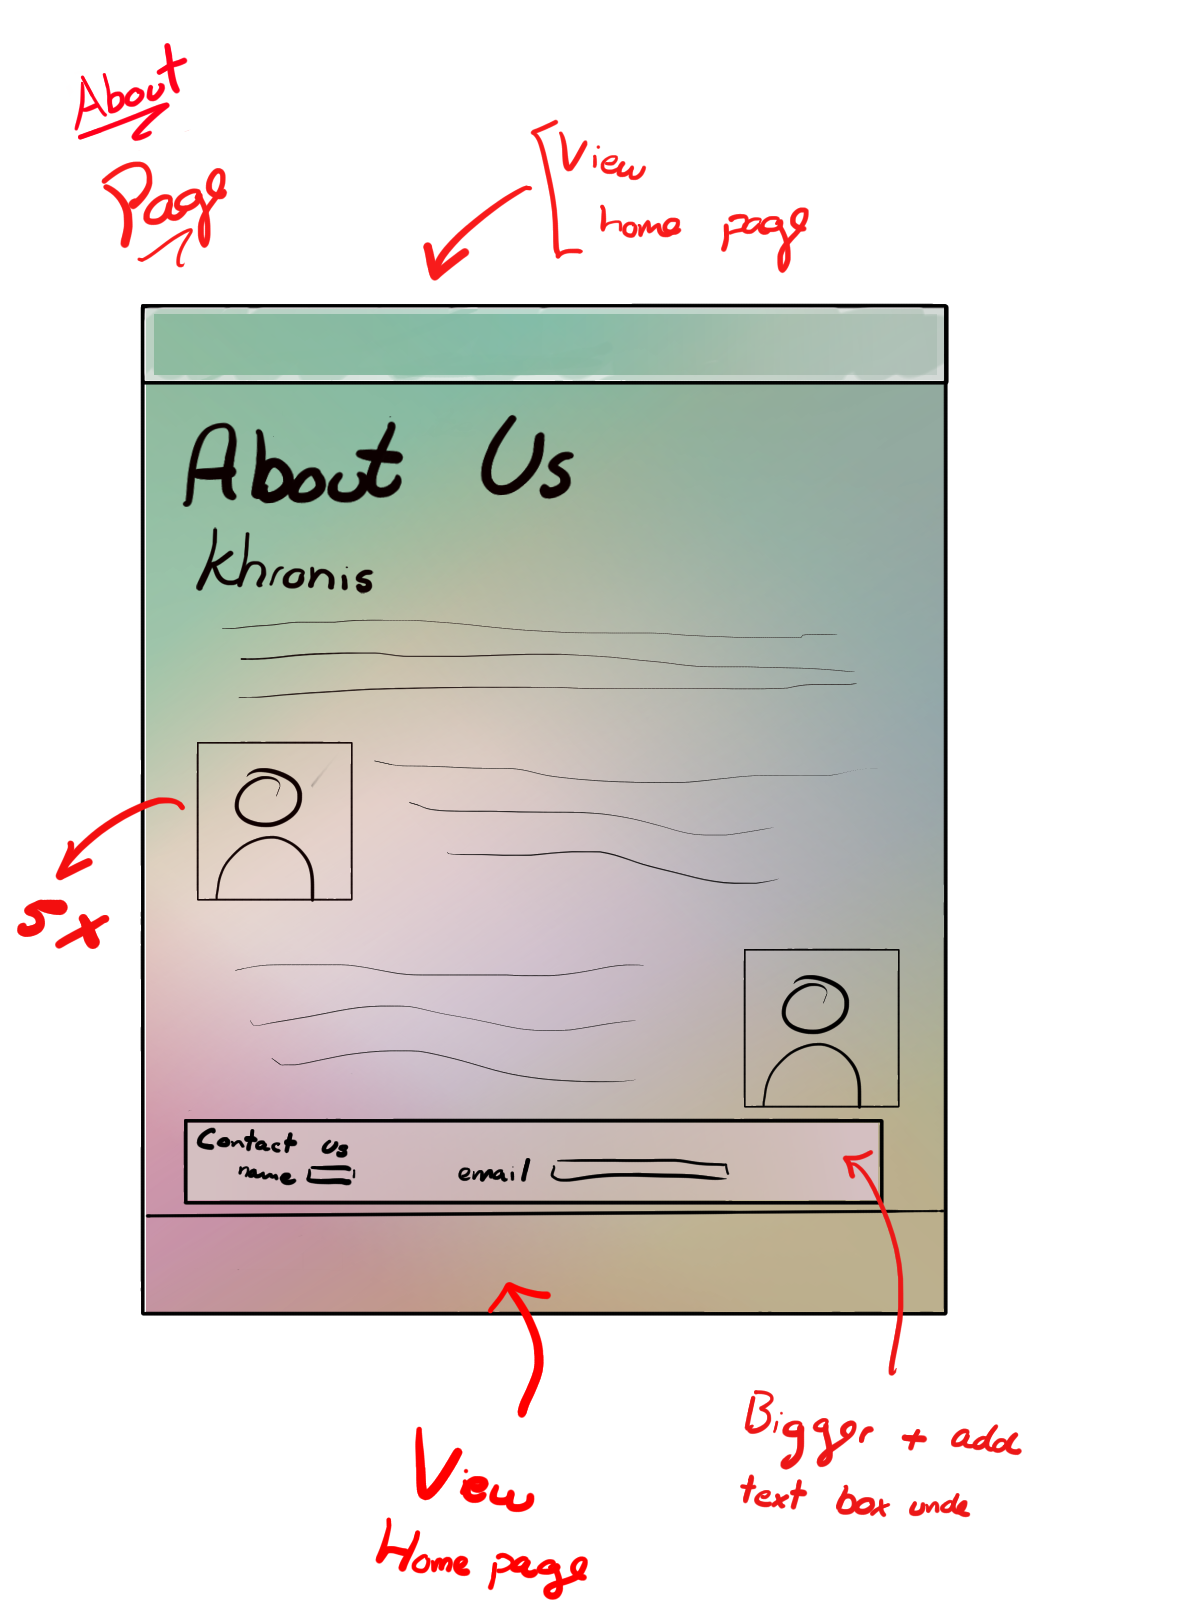 About
Page
View
home page
About Us
Khronis
5x
Contact Us
name
email
View
Home page
Bigger + add
text box unde